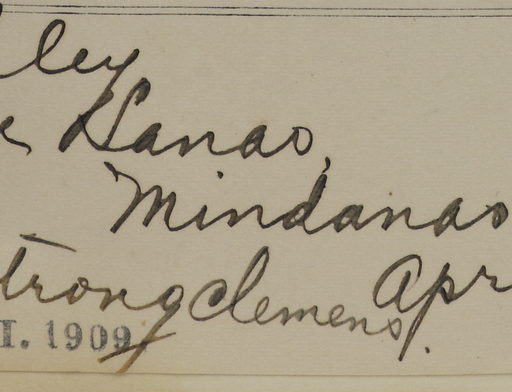 ley
e Lanao,
Mindanao
trong Clemens. Apr
I. 1909